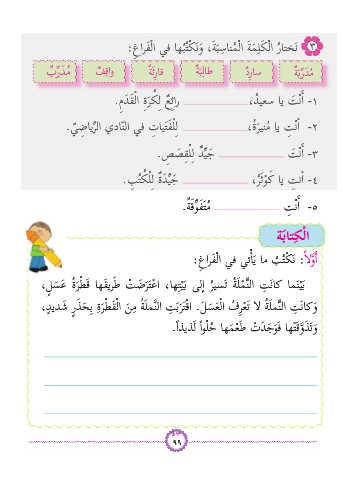 ٣ نَختارُ الْكَلِمَةَ الْمُناسِبَةَ، وَنَكْتُبُها في الْفَراغِ:
مُدَرِّبَةٌ سارِدٌ طالِبَةٌ قارِئَةٌ واقِفٌ مُدَرِّبٌ
١- أَنْتَ يا سعيدُ، ............ رائِعٌ لِكُرَةِ الْقَدَمِ.
٢- أَنْتِ يا مُنيرَةُ، ............ لِلْفَتَياتِ في النّادي الرِّياضِيِّ.
٣- أَنْتَ ............ جَيِّدٌ لِلْقِصَصِ.
٤- أنتِ يا كَوْثَرُ، ............ جَيِّدَةٌ لِلْكُتُبِ.
٥- أَنْتِ ............ مُتَفَوِّقَةٌ.
الْكِتابَة
أَوَّلاً: نَكْتُبُ ما يَأْتي في الْفَراغِ:
بَيْنَما كانَتِ النَّمْلَةُ تَسيرُ إلى بَيْتِها، اعْتَرَضَتْ طَريقَها قَطْرَةُ عَسَلٍ،
وَكانَتِ النَّملَةُ لا تَعْرِفُ الْعَسَلَ. اقْتَرَبَتِ النَّملَةُ مِنَ الْقَطْرَةِ بِحَذَرٍ شَديدٍ،
وَتَذَوَّقَتْها فَوَجَدَتْ طَعْمَها حُلْواً لَذيذاً.
٩٩